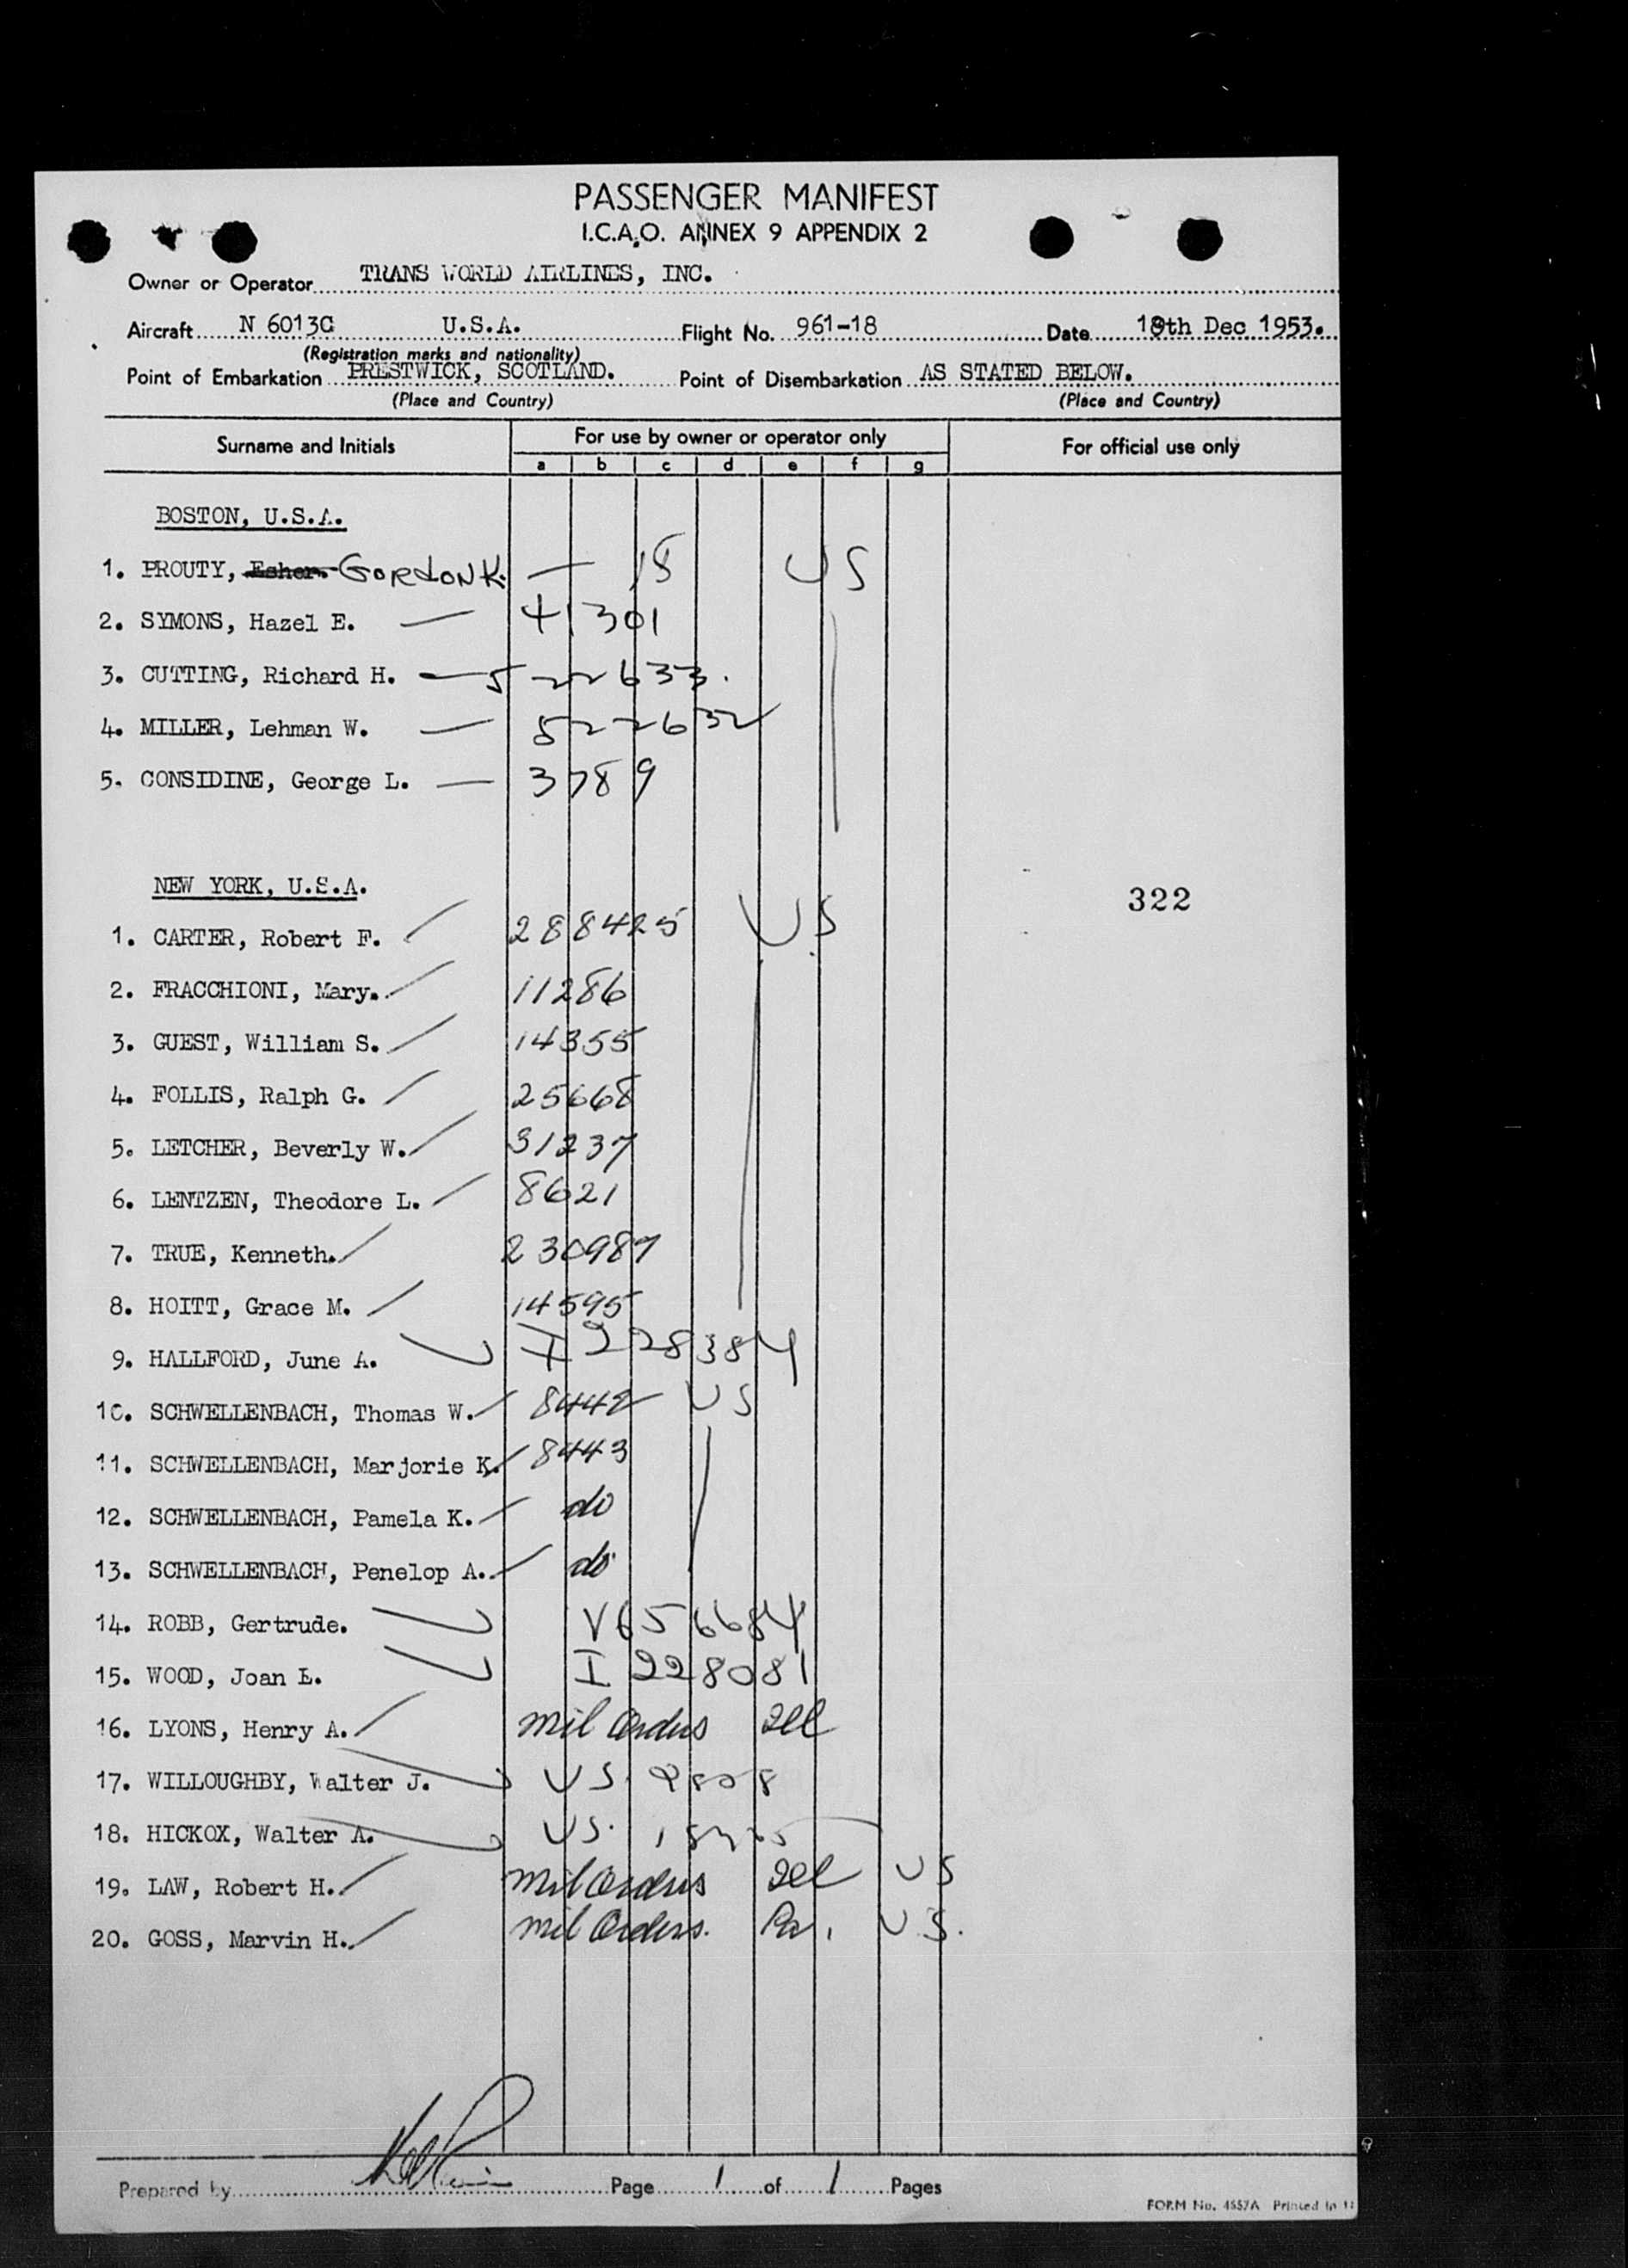 PASSENGER MANIFEST
I.C.A.O. ANNEX 9 APPENDIX 2
Owner or Operator TRANS WORLD AIRLINES, INC.
Aircraft N 6013C U.S.A. Flight No. 961-18 Date 18th Dec 1953.
(Registration marks and nationality)
Point of Embarkation PRESTWICK, SCOTLAND. Point of Disembarkation AS STATED BELOW.
(Place and Country) (Place and Country)
Surname and Initials For use by owner or operator only For official use only
a b c d e f g
BOSTON, U.S.A.
1. PROUTY, Esher. GORDON K. — 18 US
2. SYMONS, Hazel E. — 41301
3. CUTTING, Richard H. — 522633.
4. MILLER, Lehman W. — 522632
5. CONSIDINE, George L. — 3789
NEW YORK, U.S.A.
322
1. CARTER, Robert F. 288425 US
2. FRACCHIONI, Mary. 11286
3. GUEST, William S. 14355
4. FOLLIS, Ralph G. 25668
5. LETCHER, Beverly W. 31237
6. LENTZEN, Theodore L. 8621
7. TRUE, Kenneth. 230987
8. HOITT, Grace M. 14595
9. HALLFORD, June A. I 228384
10. SCHWELLENBACH, Thomas W. 8442 US
11. SCHWELLENBACH, Marjorie K. 8443
12. SCHWELLENBACH, Pamela K. do
13. SCHWELLENBACH, Penelop A. do
14. ROBB, Gertrude. V656684
15. WOOD, Joan L. I 228081
16. LYONS, Henry A. mil Orders
17. WILLOUGHBY, Walter J. US
18. HICKOX, Walter A. US.
19. LAW, Robert H. mil Orders US
20. GOSS, Marvin H. mil Orders. US.
Prepared by Page 1 of 1 Pages
FORM No. 4557A Printed in